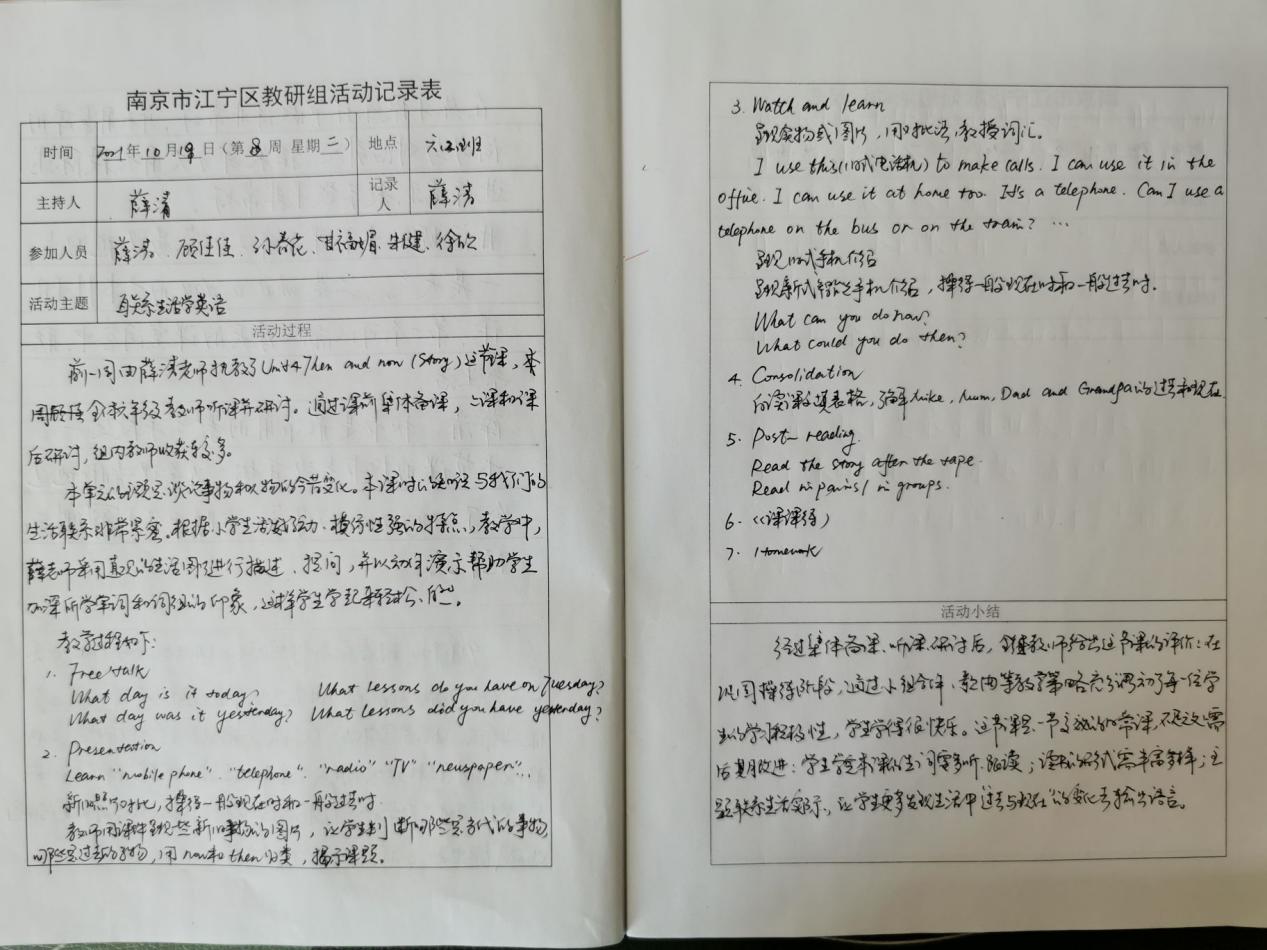 南京市江宁区教研组活动记录表
时间 2021年10月19日（第8周 星期二） 地点 六(2)班
主持人 薛清 记录人 薛清
参加人员 薛清、顾佳佳、孙春花、甘福媚、朱健、徐欣
活动主题 联系生活学英语
活动过程
前一周由薛清老师执教了Unit4 Then and now (Story)这节课，本
周 全校六年级教师听课并研讨。通过课前集体备课，上课和课
后研讨，组内教师收获较多。
本单元的主题是谈论事物和人物的今昔变化。本课时的知识与我们的
生活联系非常紧密。根据小学生活泼好动、模仿性强的特点，教学中，
薛老师采用直观的生活图片进行描述、提问，并以动作演示帮助学生
加深所学单词和词组的印象，这样学生学起来轻松、自然。
教学过程如下：
1. Free talk
What day is it today? What lessons do you have on Tuesday?
What day was it yesterday? What lessons did you have yesterday?
2. Presentation
Learn "mobile phone". "telephone". "radio" "TV" "newspaper"...
新旧照片对比，操练一般现在时和一般过去时
教师用课件呈现些新旧事物的图片，让学生判断哪些是当代的事物
哪些是过去的事物，用now和then归类，揭示课题。
3. Watch and learn
呈现实物或图片，用英语教授词汇。
I use this(旧式电话机) to make calls. I can use it in the
office. I can use it at home too. It's a telephone. Can I use a
telephone on the bus or on the train? ...
呈现旧式手机介绍
呈现新式智能手机介绍，操练一般现在时和一般过去时.
What can you do now?
What could you do then?
4. Consolidation
完成课文填表格，Mike, Mum, Dad and Grandpa的过去和现在.
5. Post-reading.
Read the story after the tape.
Read in pairs / in groups.
6.
7. Homework
活动小结
经过集体备课、听课、研讨后，教师给出这节课的评价：在
巩固操练阶段，通过小组合作、歌曲等教学策略充分调动了每一位学
生的学习积极性，学生学得很快乐。这节课是一节家常课，不足之处需
后期改进：学生学完本课的生词需多听、跟读；读书的形式需丰富多样；主
题联系生活实际，让学生更多发现生活中过去与现在的变化去输出语言。